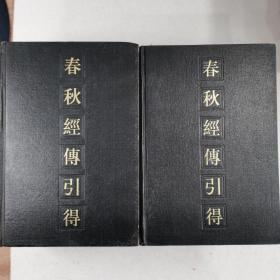 春秋經傳引得
春秋經傳引得